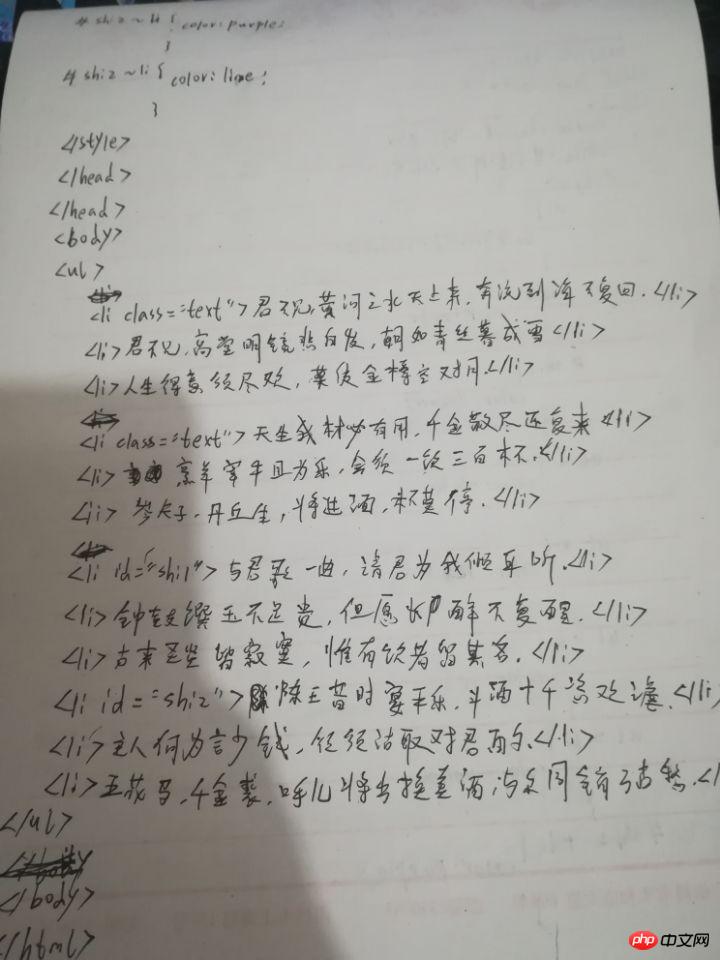 # shiz ~ li { color: purple;
}
# shiz ~ li { color: lime;
}
</style>
</head>
</head>
<body>
<ul>
<li class="text">君不见,黄河之水天上来,奔流到海不复回.</li>
<li>君不见,高堂明镜悲白发,朝如青丝暮成雪</li>
<li>人生得意须尽欢,莫使金樽空对月.</li>
<li class="text">天生我材必有用,千金散尽还复来</li>
<li>烹羊宰牛且为乐,会须一饮三百杯.</li>
<li>岑夫子,丹丘生,将进酒,杯莫停.</li>
<li id="shi1">与君歌一曲,请君为我倾耳听.</li>
<li>钟鼓馔玉不足贵,但愿长醉不复醒.</li>
<li>古来圣贤皆寂寞,惟有饮者留其名.</li>
<li id="shiz">陈王昔时宴平乐,斗酒十千恣欢谑.</li>
<li>主人何为言少钱,径须沽取对君酌.</li>
<li>五花马,千金裘,呼儿将出换美酒,与尔同销万古愁.</
</ul>
</body>
</html>
php 中文网